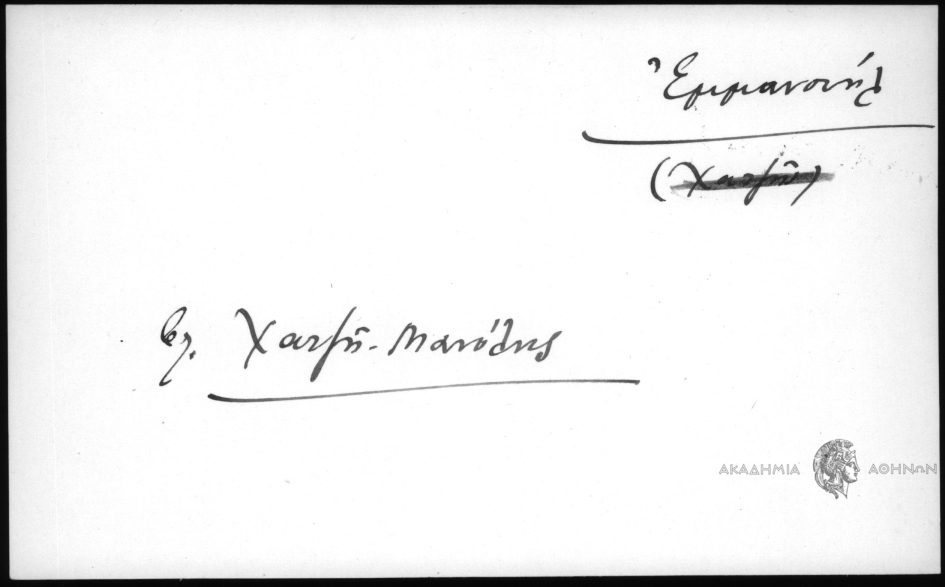 Ἐμμανουήλ
(Χατζῆ)
βλ. Χατζῆ-Μανόλης
ΑΚΑΔΗΜΙΑ ΑΘΗΝΩΝ